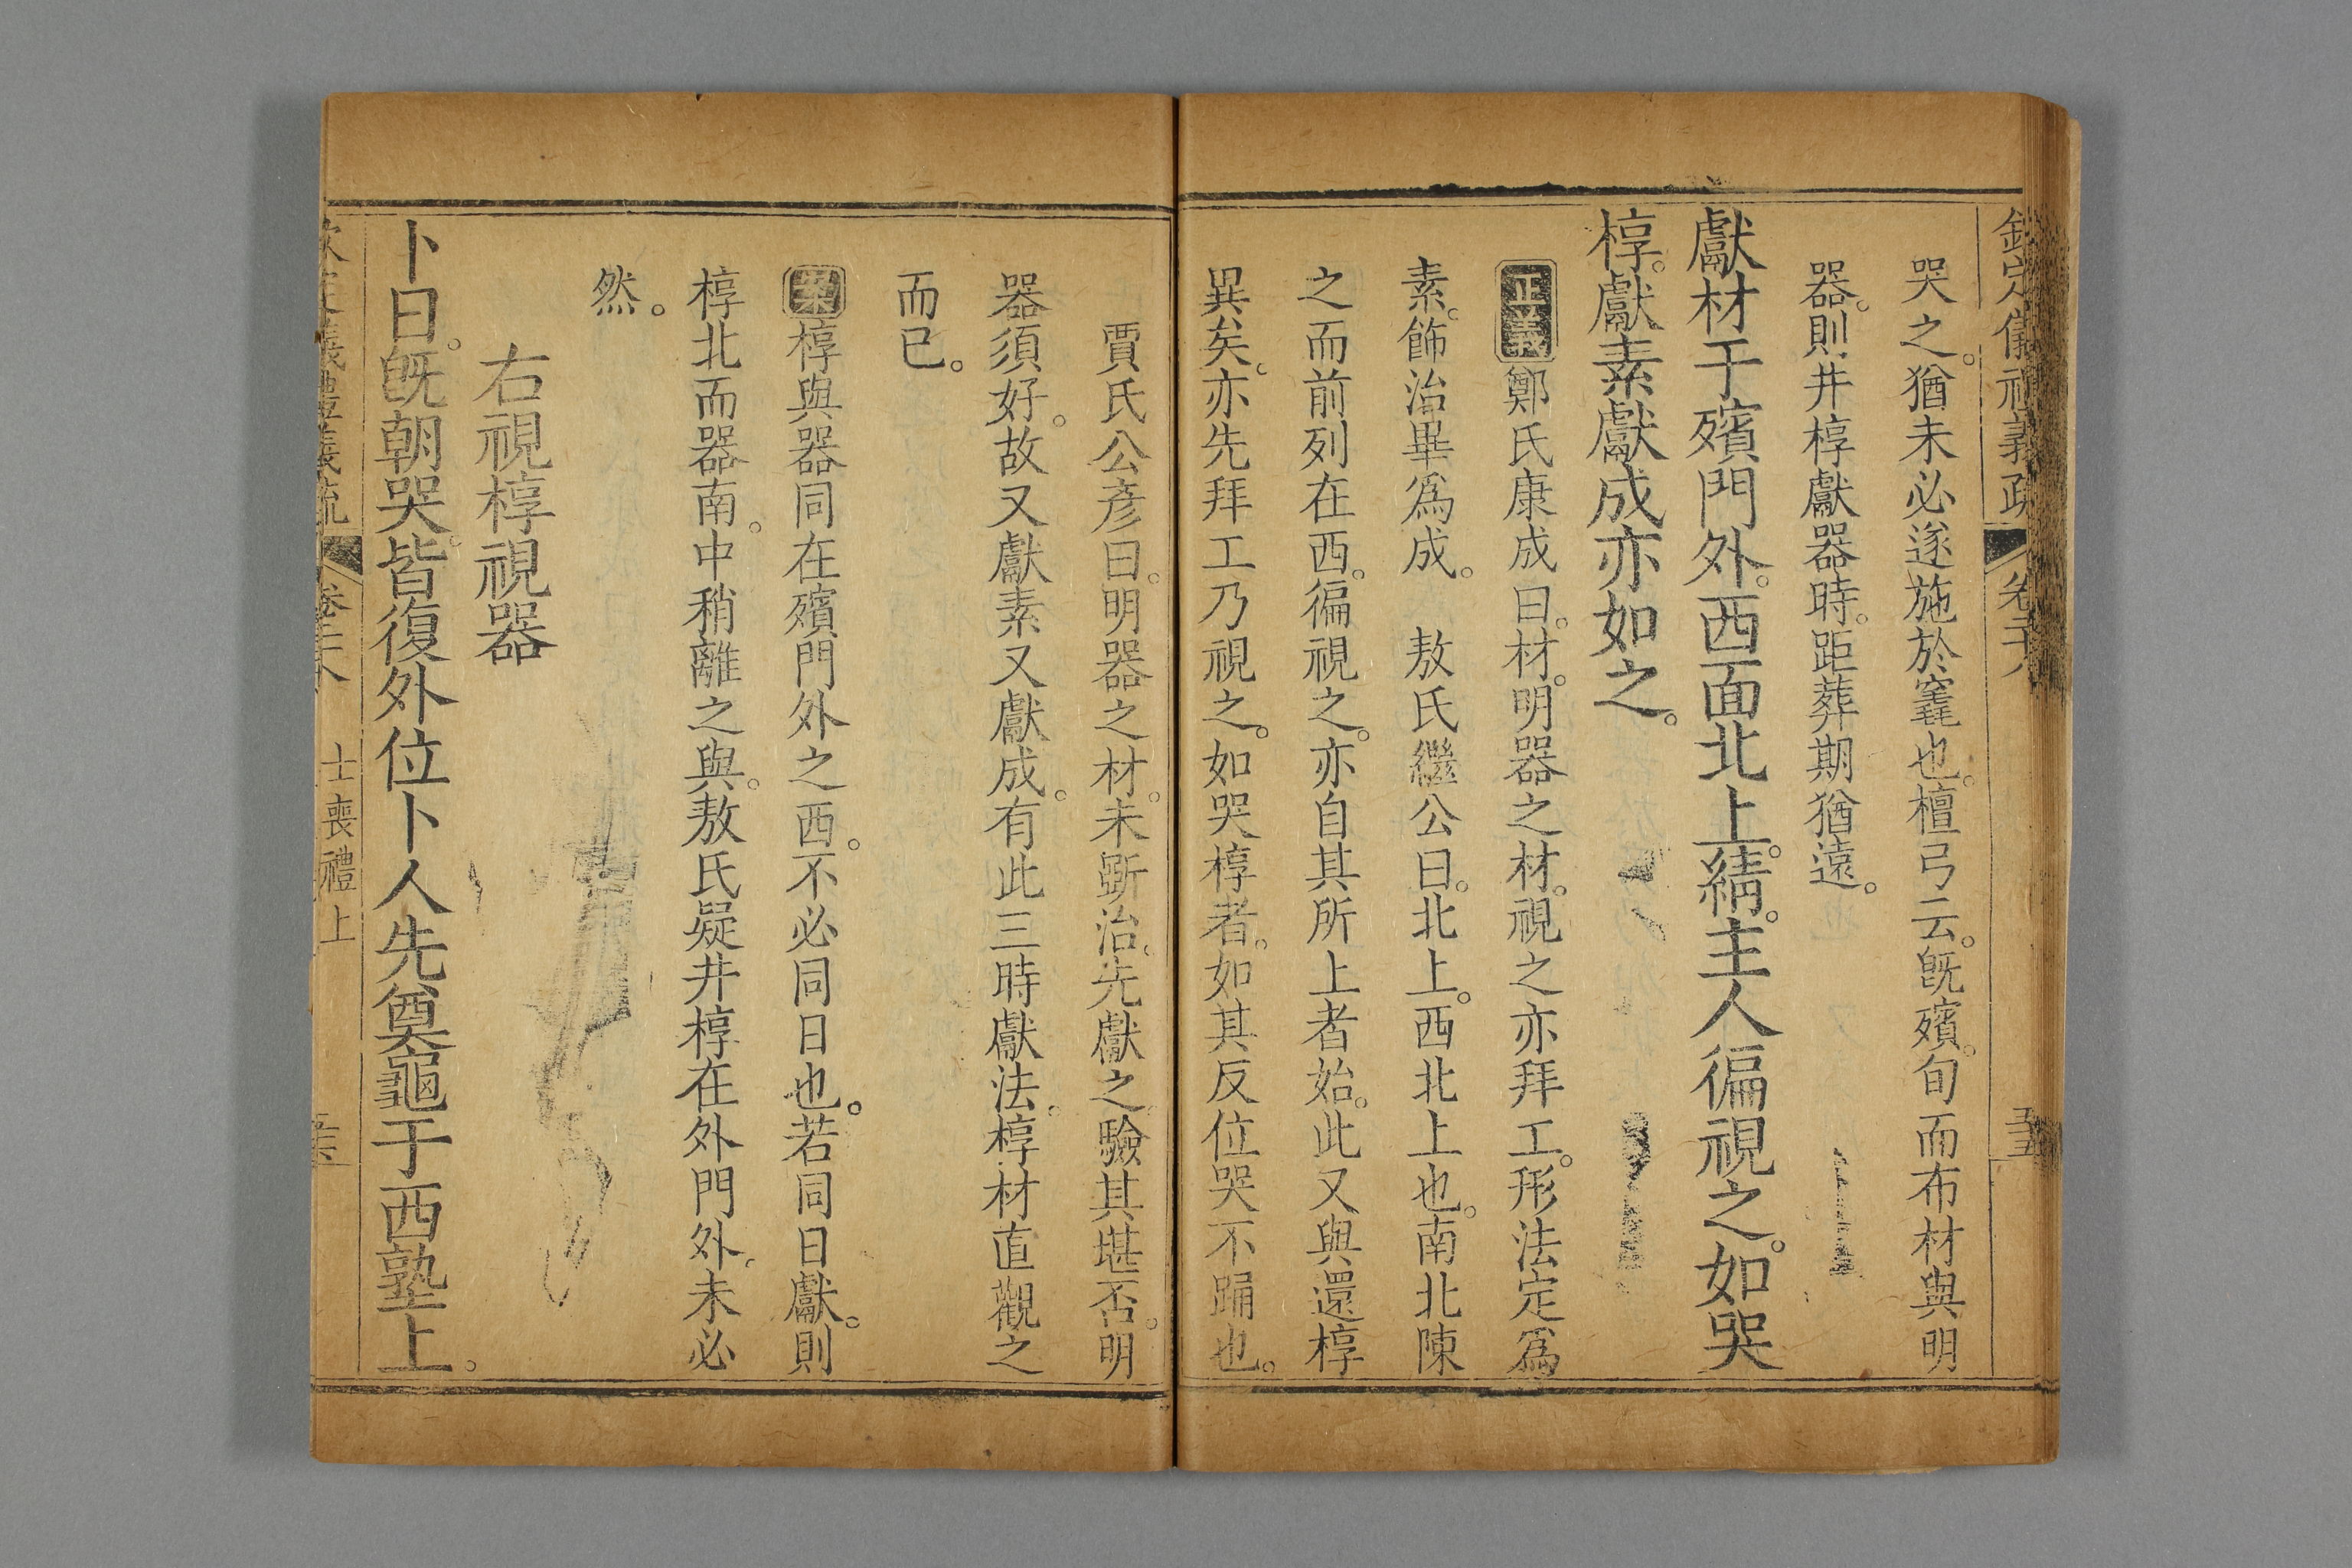 欽定儀禮義疏 卷二十八
哭之。猶未必遂施於窆也。檀弓云。旣殯。旬而布材與明
器。則井椁獻器時。距葬期猶遠。
獻材于殯門外。西面北上。綪。主人徧視之。如哭
椁。獻素獻成亦如之。
正義鄭氏康成曰。材。明器之材。視之亦拜工。形法定爲
素。飾治畢爲成。 敖氏繼公曰。北上。西北上也。南北陳
之而前列在西。徧視之。亦自其所上者始。此又與還椁
異矣。亦先拜工乃視之。如哭椁者。如其反位哭不踊也。
賈氏公彦曰。明器之材。未斵治。先獻之驗其堪否。明
器須好。故又獻素又獻成。有此三時獻法。椁材直觀之
而已。
案椁與器同在殯門外之西。不必同日也。若同日獻。則
椁北而器南。中稍離之與。敖氏疑井椁在外門外。未必
然。
右視椁視器
卜日。旣朝哭。皆復外位卜人先奠龜于西塾上。
欽定儀禮義疏 卷二十八 士喪禮上